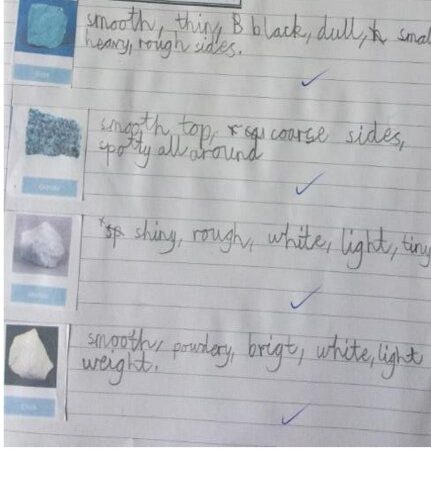 smooth, thin, B black, dull, smal
heavy, rough sides.
Slate
smooth top, coarse sides,
spotty all around
Granite
shiny, rough, white, light, tiny
Marble
smooth, powdery, brigt, white, light
weight.
Chalk